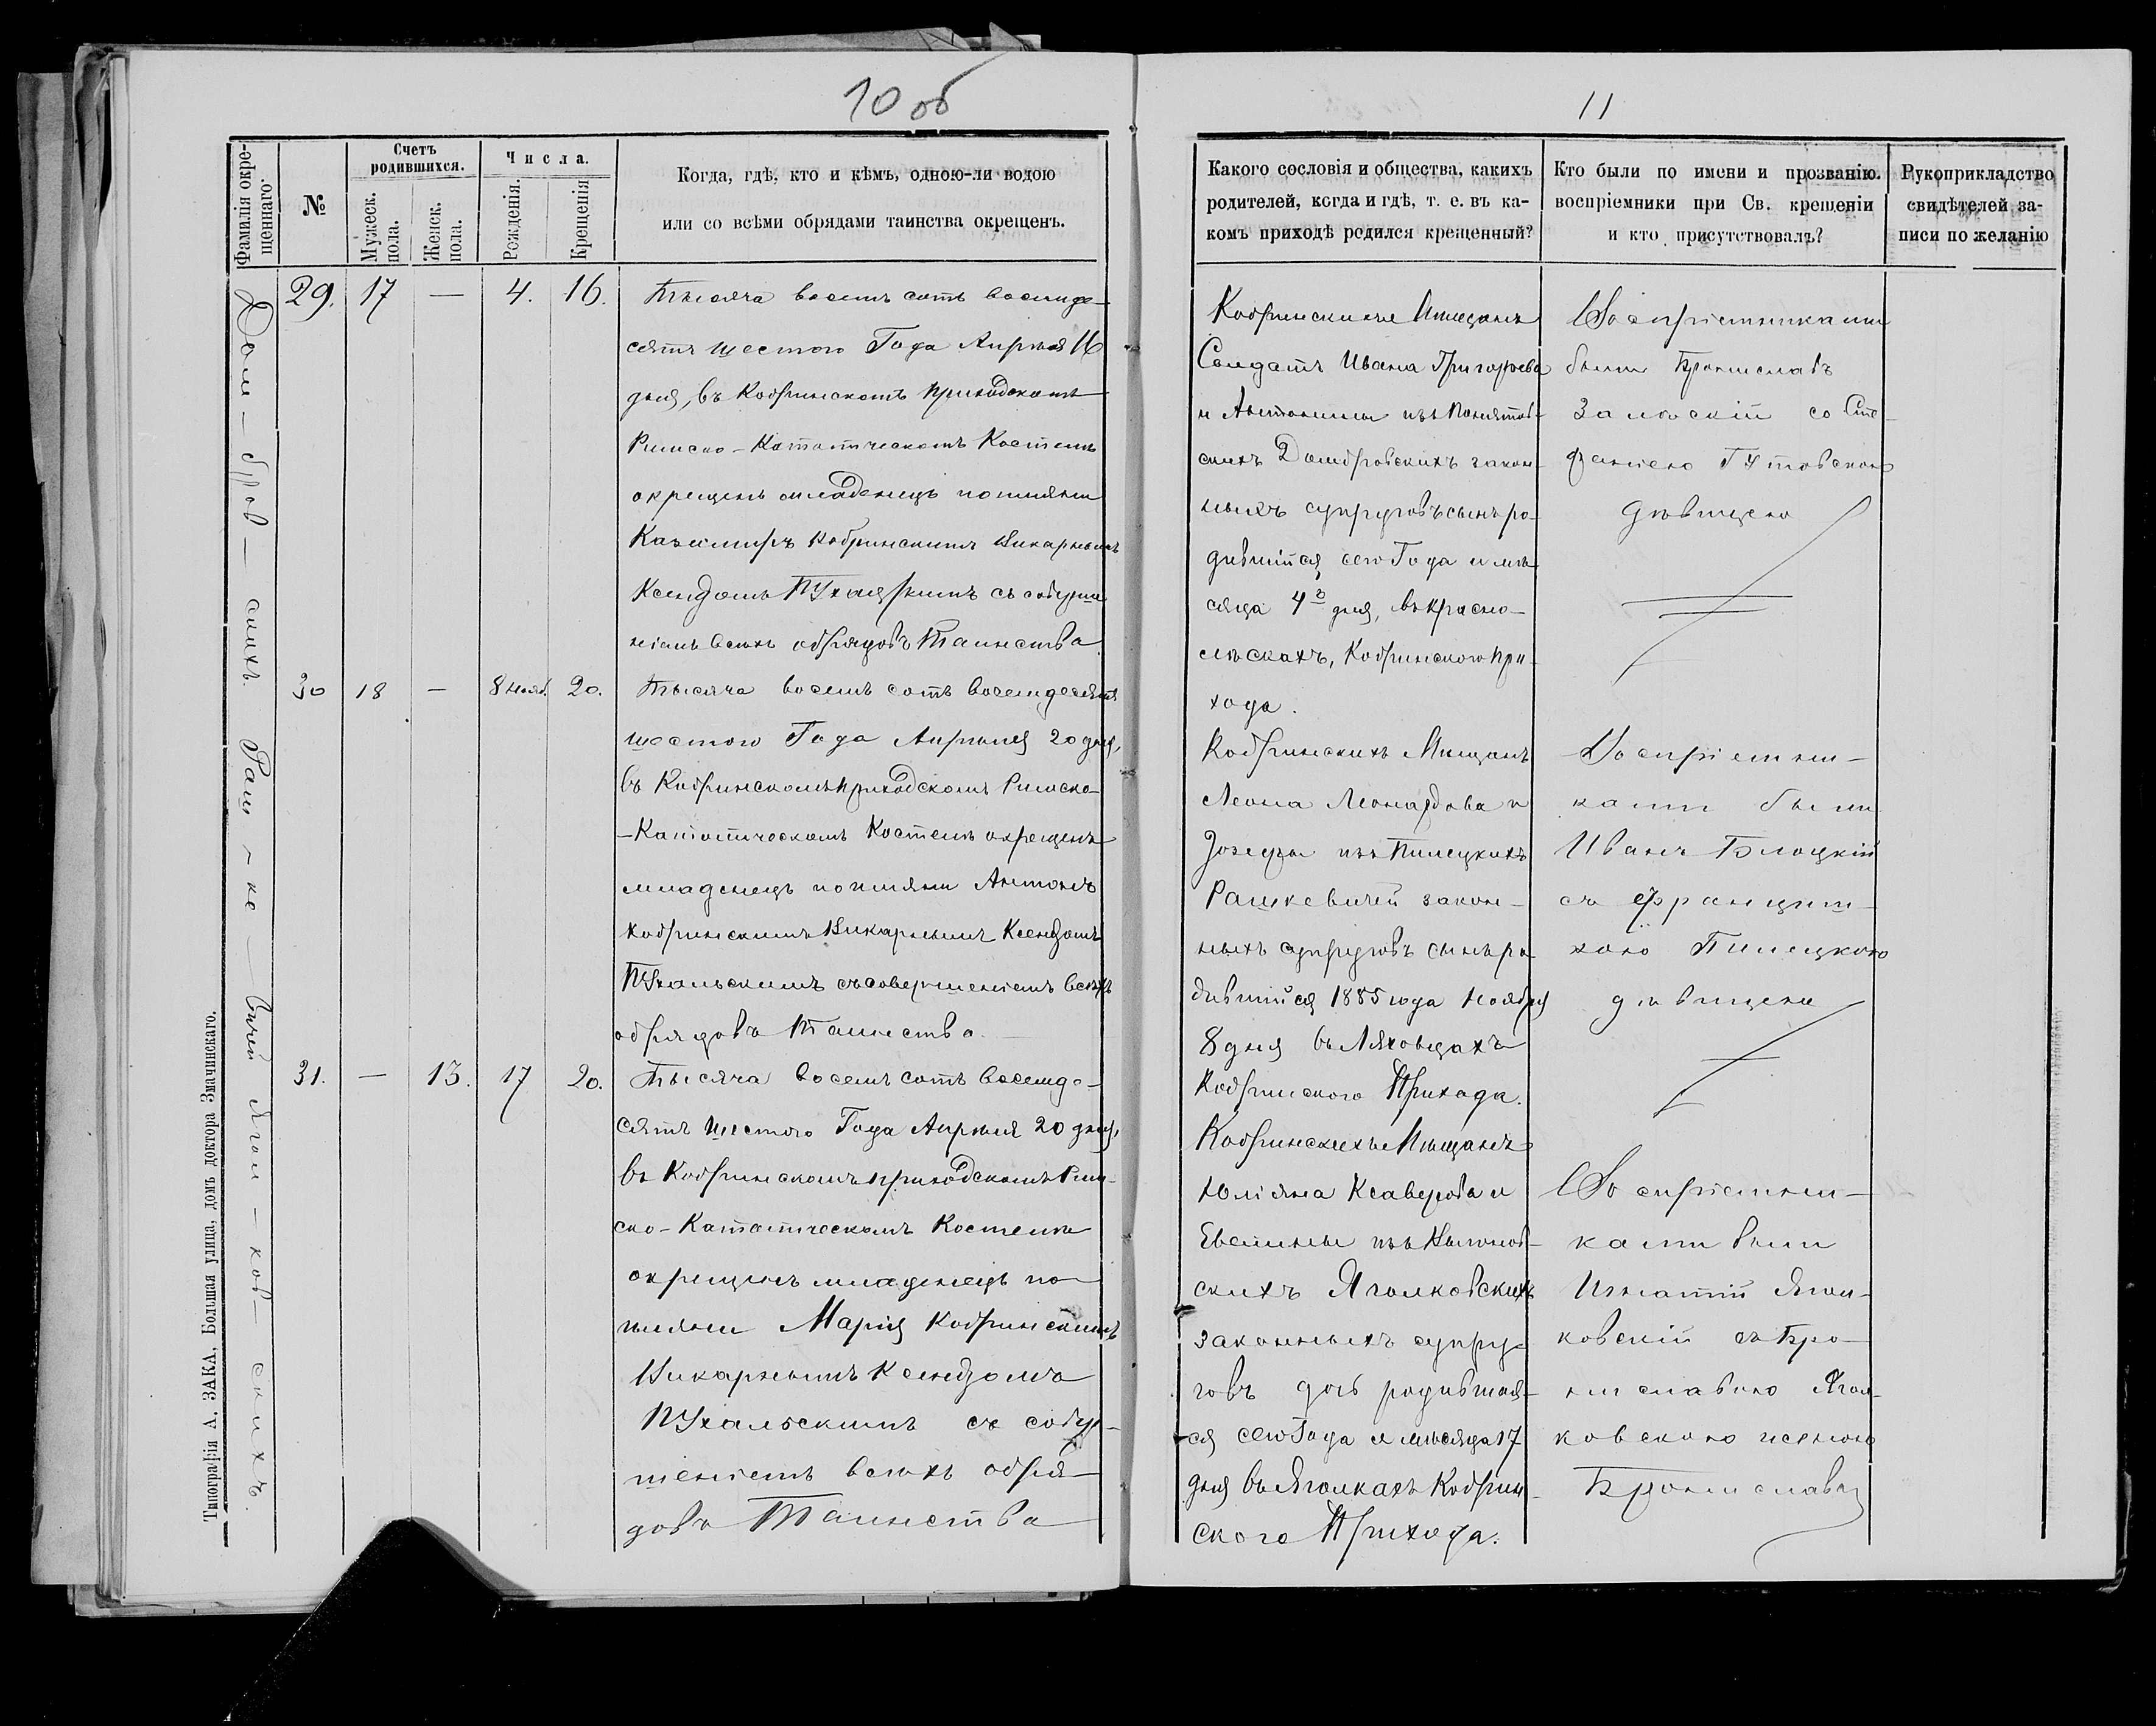 10 об
11
Фамилія окре-
щеннаго.
№
Счетъ
родившихся.
Мужеск.
пола.
Женск.
пола.
Числа.
Рожденія.
Крещенія
Когда, гдѣ, кто и кѣмъ, одною-ли водою
или со всѣми обрядами таинства окрещенъ.
Дом-бров-скихъ.
29.
17
—
4.
16.
Тысяча восемь сотъ восемьде-
сятъ шестого Года Апрѣля 16
дня, въ Кобринскомъ приходскомъ
Римско-Католическомъ Костелѣ
окрещенъ младенецъ по имяни
Казимиръ Кобринскимъ Викарнымъ
Ксендзомъ Пухальскимъ съ соверше
ніемъ всѣхъ обрядовъ Таинства
Раш-ке-вичей
30
18
—
8 Нояб.
20.
Тысяча восемь сотъ восемдесятъ
шестого Года Апрѣля 20 дня,
въ Кобринскомъ приходскомъ Римско-
-Католическомъ Костелѣ окрещенъ
младенецъ по имяни Антонъ
Кобринскимъ Викарнымъ Ксендзомъ
Пухальскимъ съ совершеніемъ всѣхъ
обрядовъ Таинства.
Ягол-ков-скихъ.
31.
—
13.
17
20.
Тысяча восемь сотъ восемде-
сятъ шестого Года Апрѣля 20 дня,
въ Кобринскомъ приходскомъ Рим-
ско-Католическомъ Костелѣ
окрещенъ младенецъ по
имяни Марія Кобринскимъ
Викарнымъ Ксендзомъ
Пухальскимъ съ совер-
шеніемъ всѣхъ обря-
довъ Таинства
Типографія А. ЗАКА, Большая улица, домъ доктора Змачинскаго.
Какого сословія и общества, какихъ
родителей, когда и гдѣ, т. е. въ ка-
комъ приходѣ родился крещенный?
Кто были по имени и прозванію.
воспріемники при Св. крещеніи
и кто присутствовалъ?
Рукоприкладство
свидѣтелей за-
писи по желанію
Солдатъ Ивана Григорьева
и Антонины изъ Понятов-
скихъ Домбровскихъ закон-
ныхъ супруговъ сынъ ро-
дившійся сего Года и мѣ-
сяца 4го дня, въ Красно-
слѣскахъ, Кобринского При-
хода.
Воспріемниками
были Брониславъ
Залѣскій со Сте-
фаніею Гутовскою
дѣвицею
Кобринскихъ Мѣщанъ
Леона Леонардова и
Іозефы изъ Пилецкихъ
Рашкевичей закон-
ныхъ супруговъ сынъ ро
дившійся 1885 года Ноября
8 дня въ Ляховцахъ
Кобринского Прихода.
Воспріемни-
ками были
Иванъ Блоцкій
съ Францишкою Пилецкою
дѣвицею
Кобринскихъ Мѣщанъ
Юліяна Ксаверова и
скихъ Яголковскихъ
законныхъ супру-
говъ дочь родившая-
ся сего Года и мѣсяца 17
дня въ Яголкахъ Кобрин-
ского Прихода.
Воспріемни-
ками были
Игнатій Ягол-
ковскій съ Бро-
ниславою Ягол-
ковскою женою
Бронислава